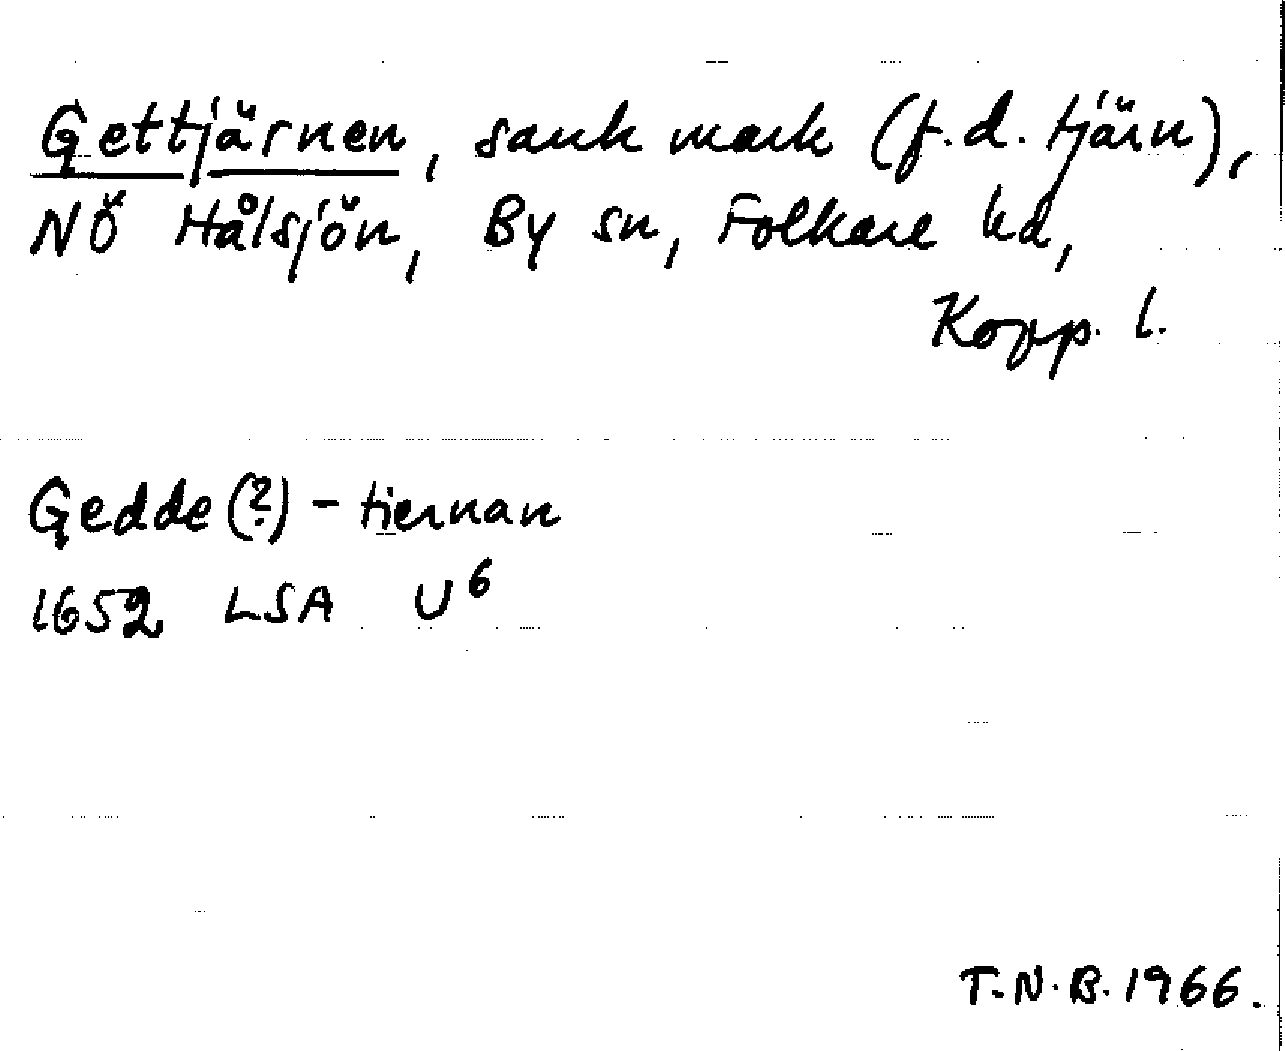 Gettjärnen, sank mark (f.d. tjärn),
NÖ Hålsjön, By sn, Folkare hd,
Kopp. l.
Gedde(?)-tiernan
1652 LSA U⁶
T.N.B. 1966.